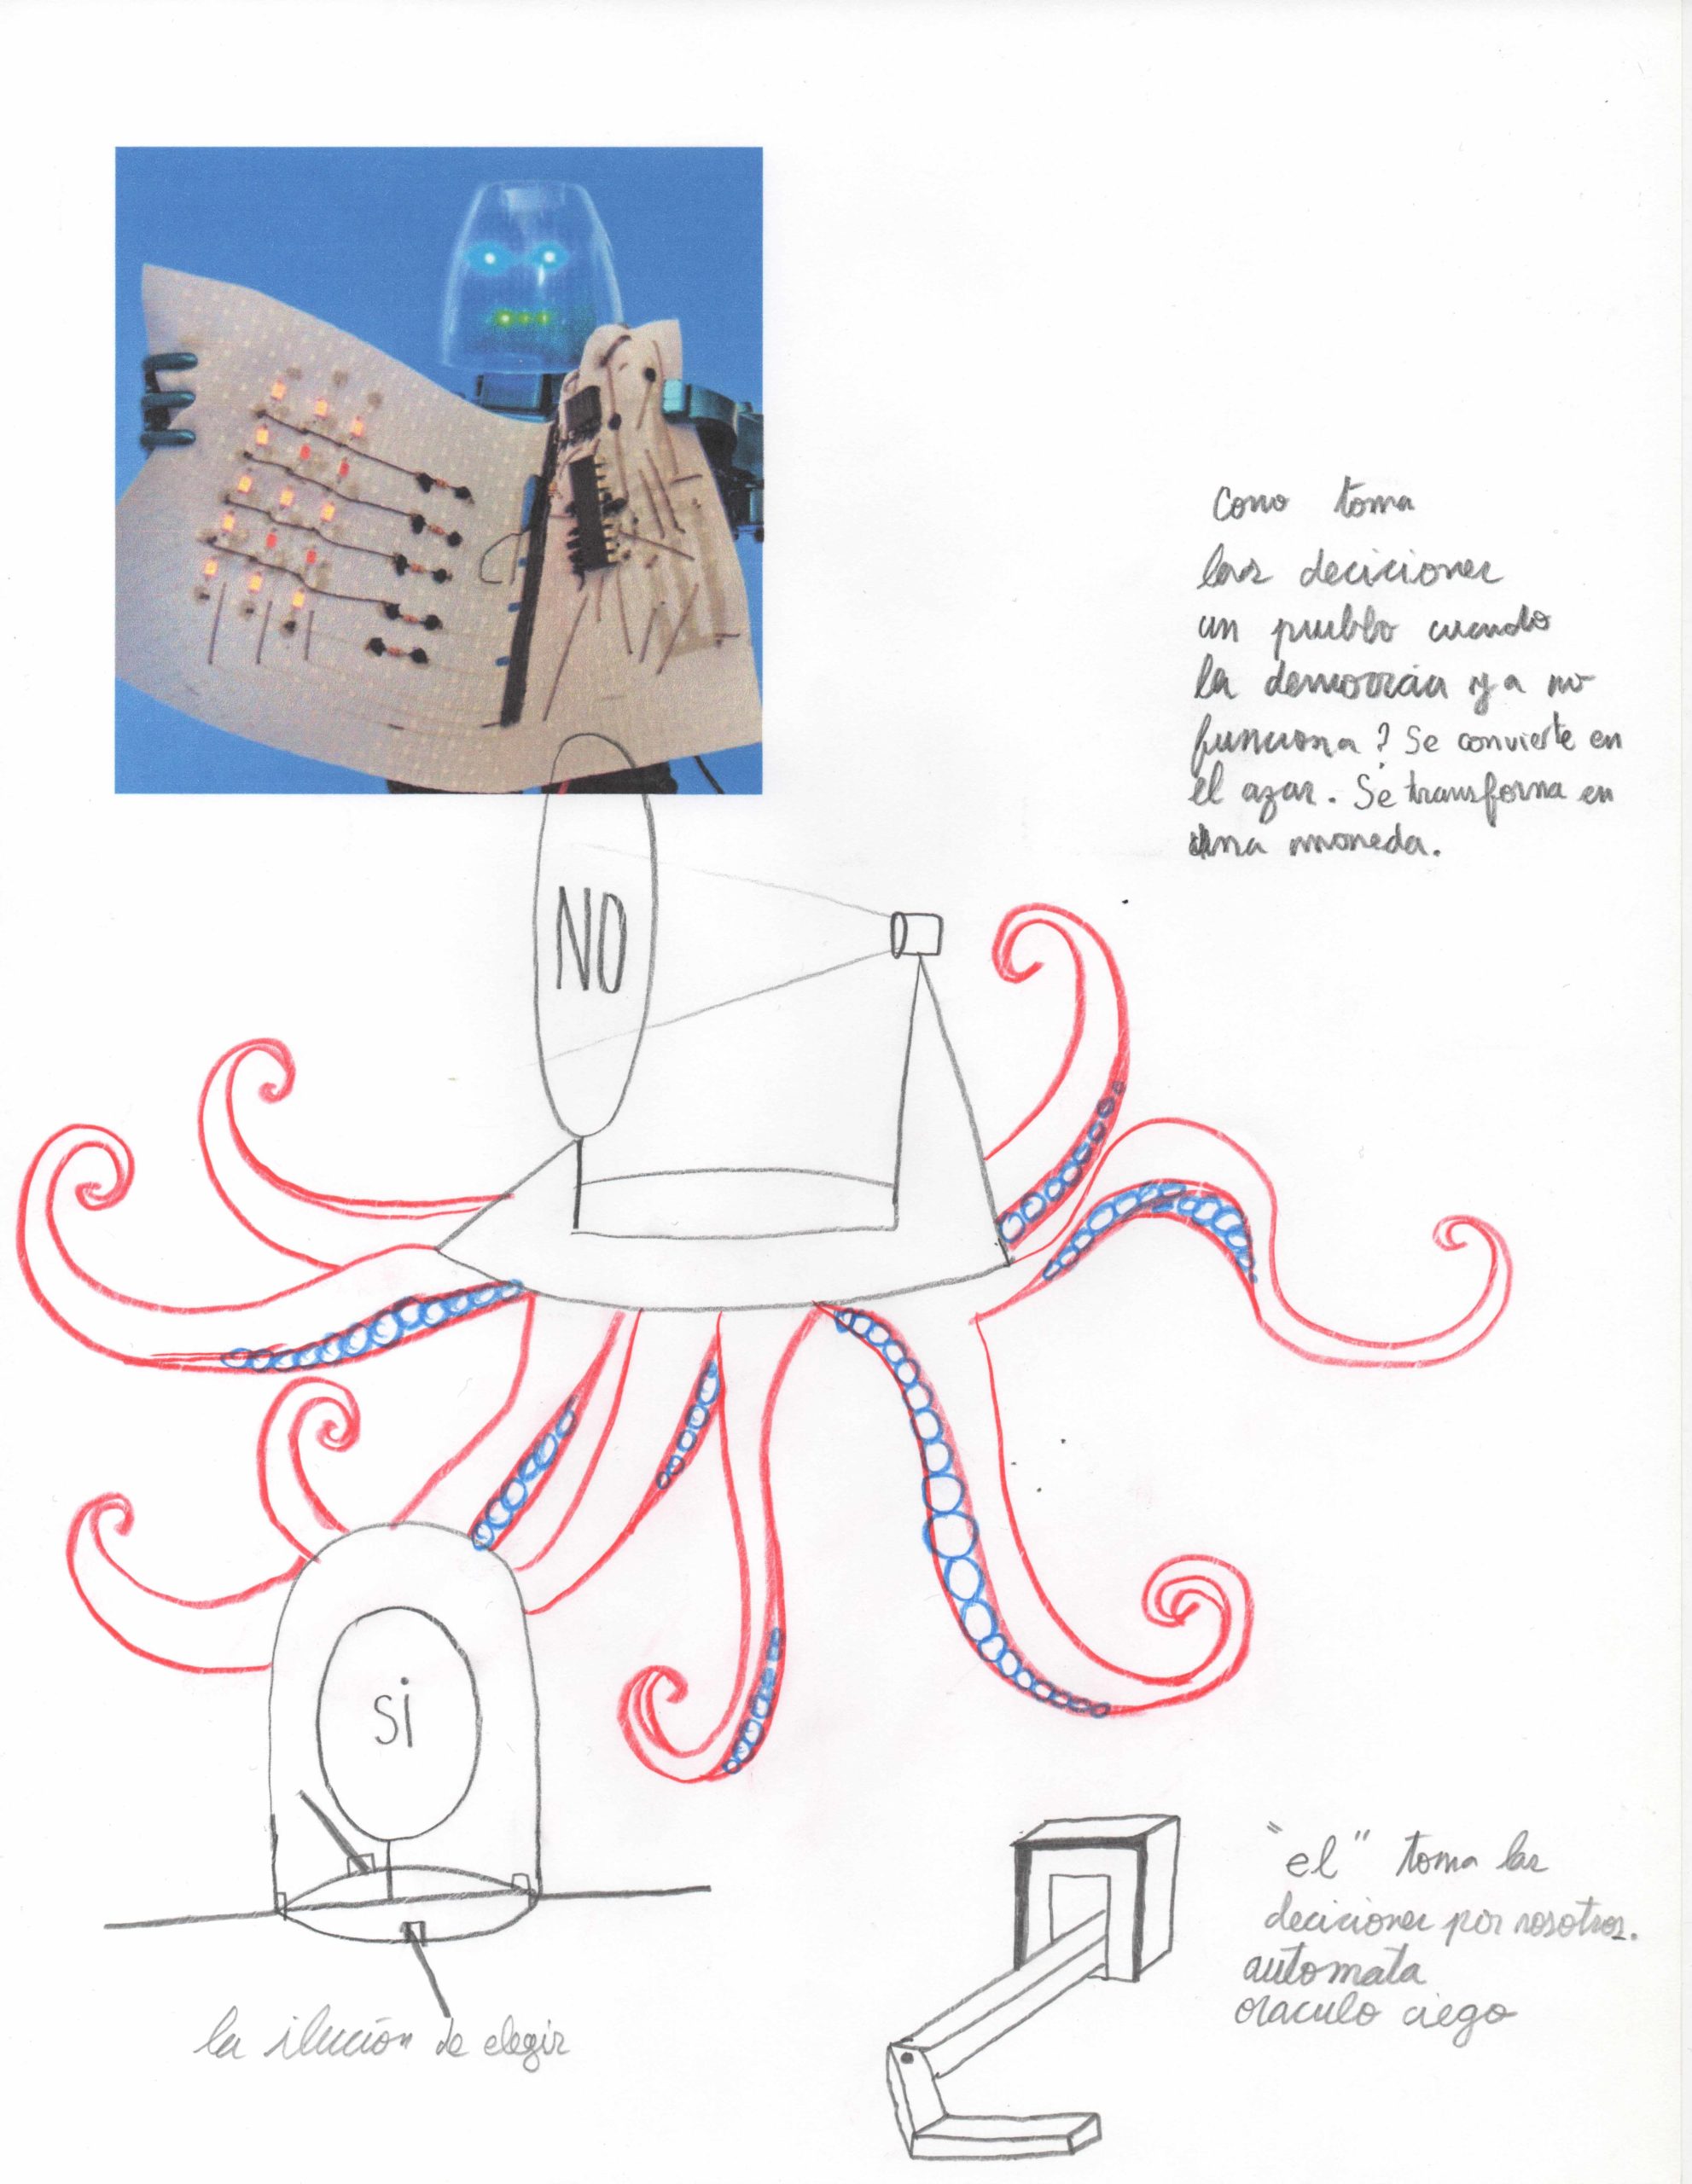 Como toma
las deciciones
un pueblo cuando
la democracia ya no
funciona? Se convierte en
el azar. Se transforma en
una moneda.
NO
SI
"el" toma las
deciciones por nosotros.
automata
oraculo ciego
la ilución de elegir